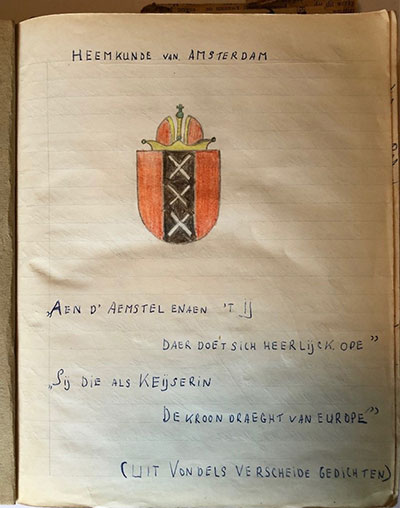 HEEMKUNDE VAN AMSTERDAM
„AEN D' AEMSTEL ENAEN 'T IJ
DAER DOE'T SICH HEERLIJCK OPE”
„SIJ DIE ALS KEIJSERIN
DE KROON DRAEGHT VAN EUROPE”
(UIT VONDELS VERSCHEIDE GEDICHTEN)